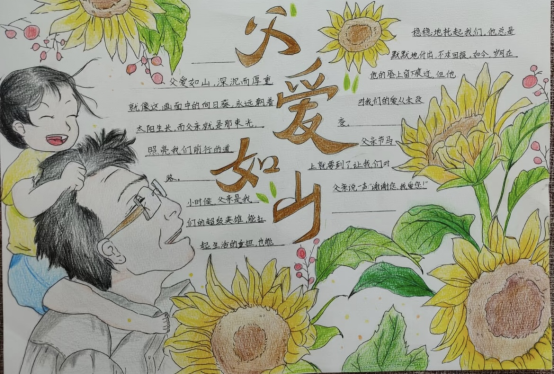 父爱如山
父爱如山,深沉而厚重
就像这画面中的向日葵,永远朝着
太阳生长,而父亲就是那束光,
照亮我们前行的道
路。
小时候,父亲是我
们的超级英雄,能扛
起生活的重担,也能
稳稳地托起我们,他总是
默默地付出,不求回报,如今,岁月在
他的脸上留下痕迹,但他
对我们的爱从未改
变。
父亲节马
上就要到了,让我们对
父亲说一声“谢谢您,我爱您!”